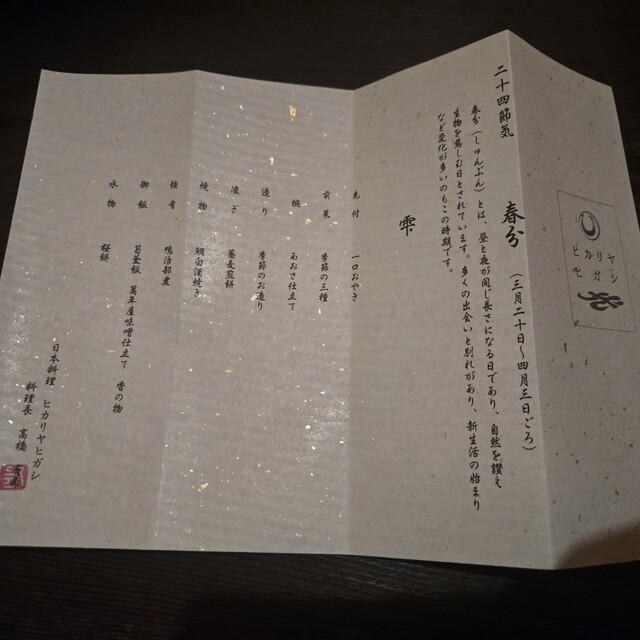 ヒカリヤ
ヒガシ
二十四節気
春分 (三月二十日〜四月三日ごろ)
春分(しゅんぶん)とは、昼と夜が同じ長さになる日であり、自然を讃え
生物を慈しむ日とされています。多くの出会いと別れがあり、新生活の始まり
など変化が多いのもこの時期です。
雫
先付 一口おやき
前菜 季節の三種
椀 あおさ仕立て
造り 季節のお造り
凌ぎ 蕎麦煎餅
焼物 鯛の酒焼き
強肴 鴨治部煮
御飯 筍釜飯 萬年屋味噌仕立て 香の物
水物 桜餅
日本料理 ヒカリヤヒガシ
料理長 高橋